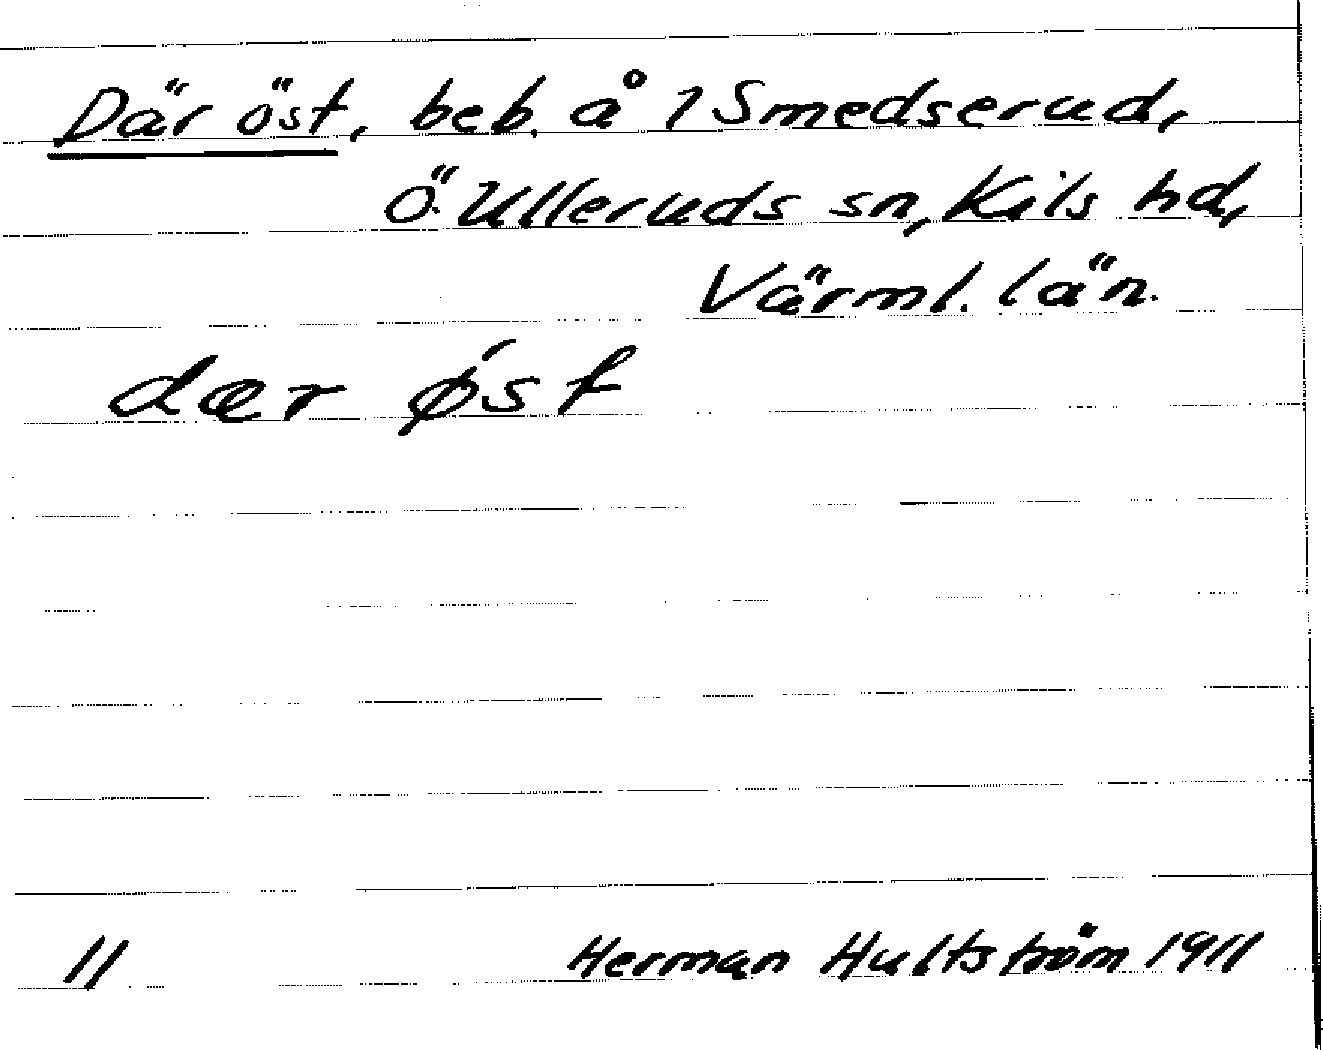 Där öst, beb. å 1 Smedserud,
Ö. Ulleruds sn, Kils hd,
Värml. län.
dær ǿst
11 Herman Hultström 1911